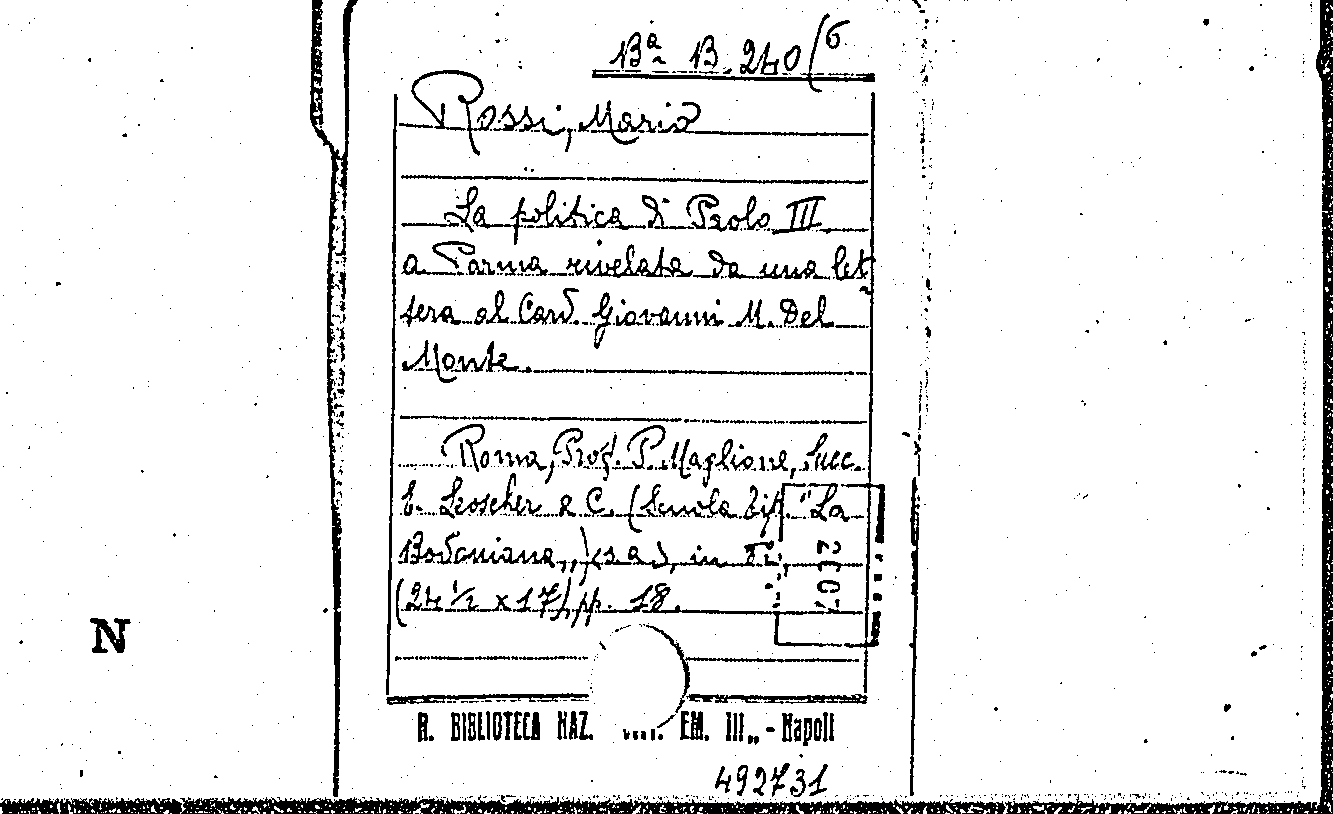 Bª B. 240/6
Rossi, Mario
La politica di Paolo III
a Parma rivelata da una let
tera al Card. Giovanni M. Del
Monte.
Roma, Prof. P. Maglione, Succ.
E. Loescher & C. (Scuola Tip. "La
Bodoniana„) (s. a.), in
(24 ½ x 17), pp. 18.
N
R. BIBLIOTECA NAZ. EM. III„ - Napoli
492731